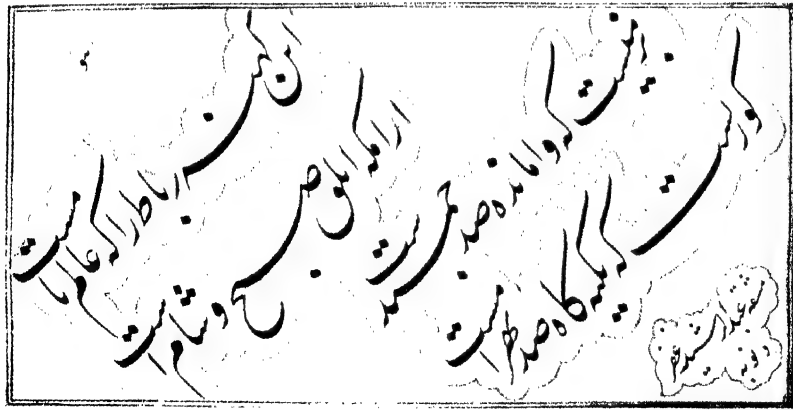 این کهنه رباط را که عالم نامست
ارامکه ابلق صبح و شام است
بزمیست که وامانده صد جمشیدست
کوریست که تکیه کاه صد بهرامست
مشقه عبدالرشید غفر
ذنوبه